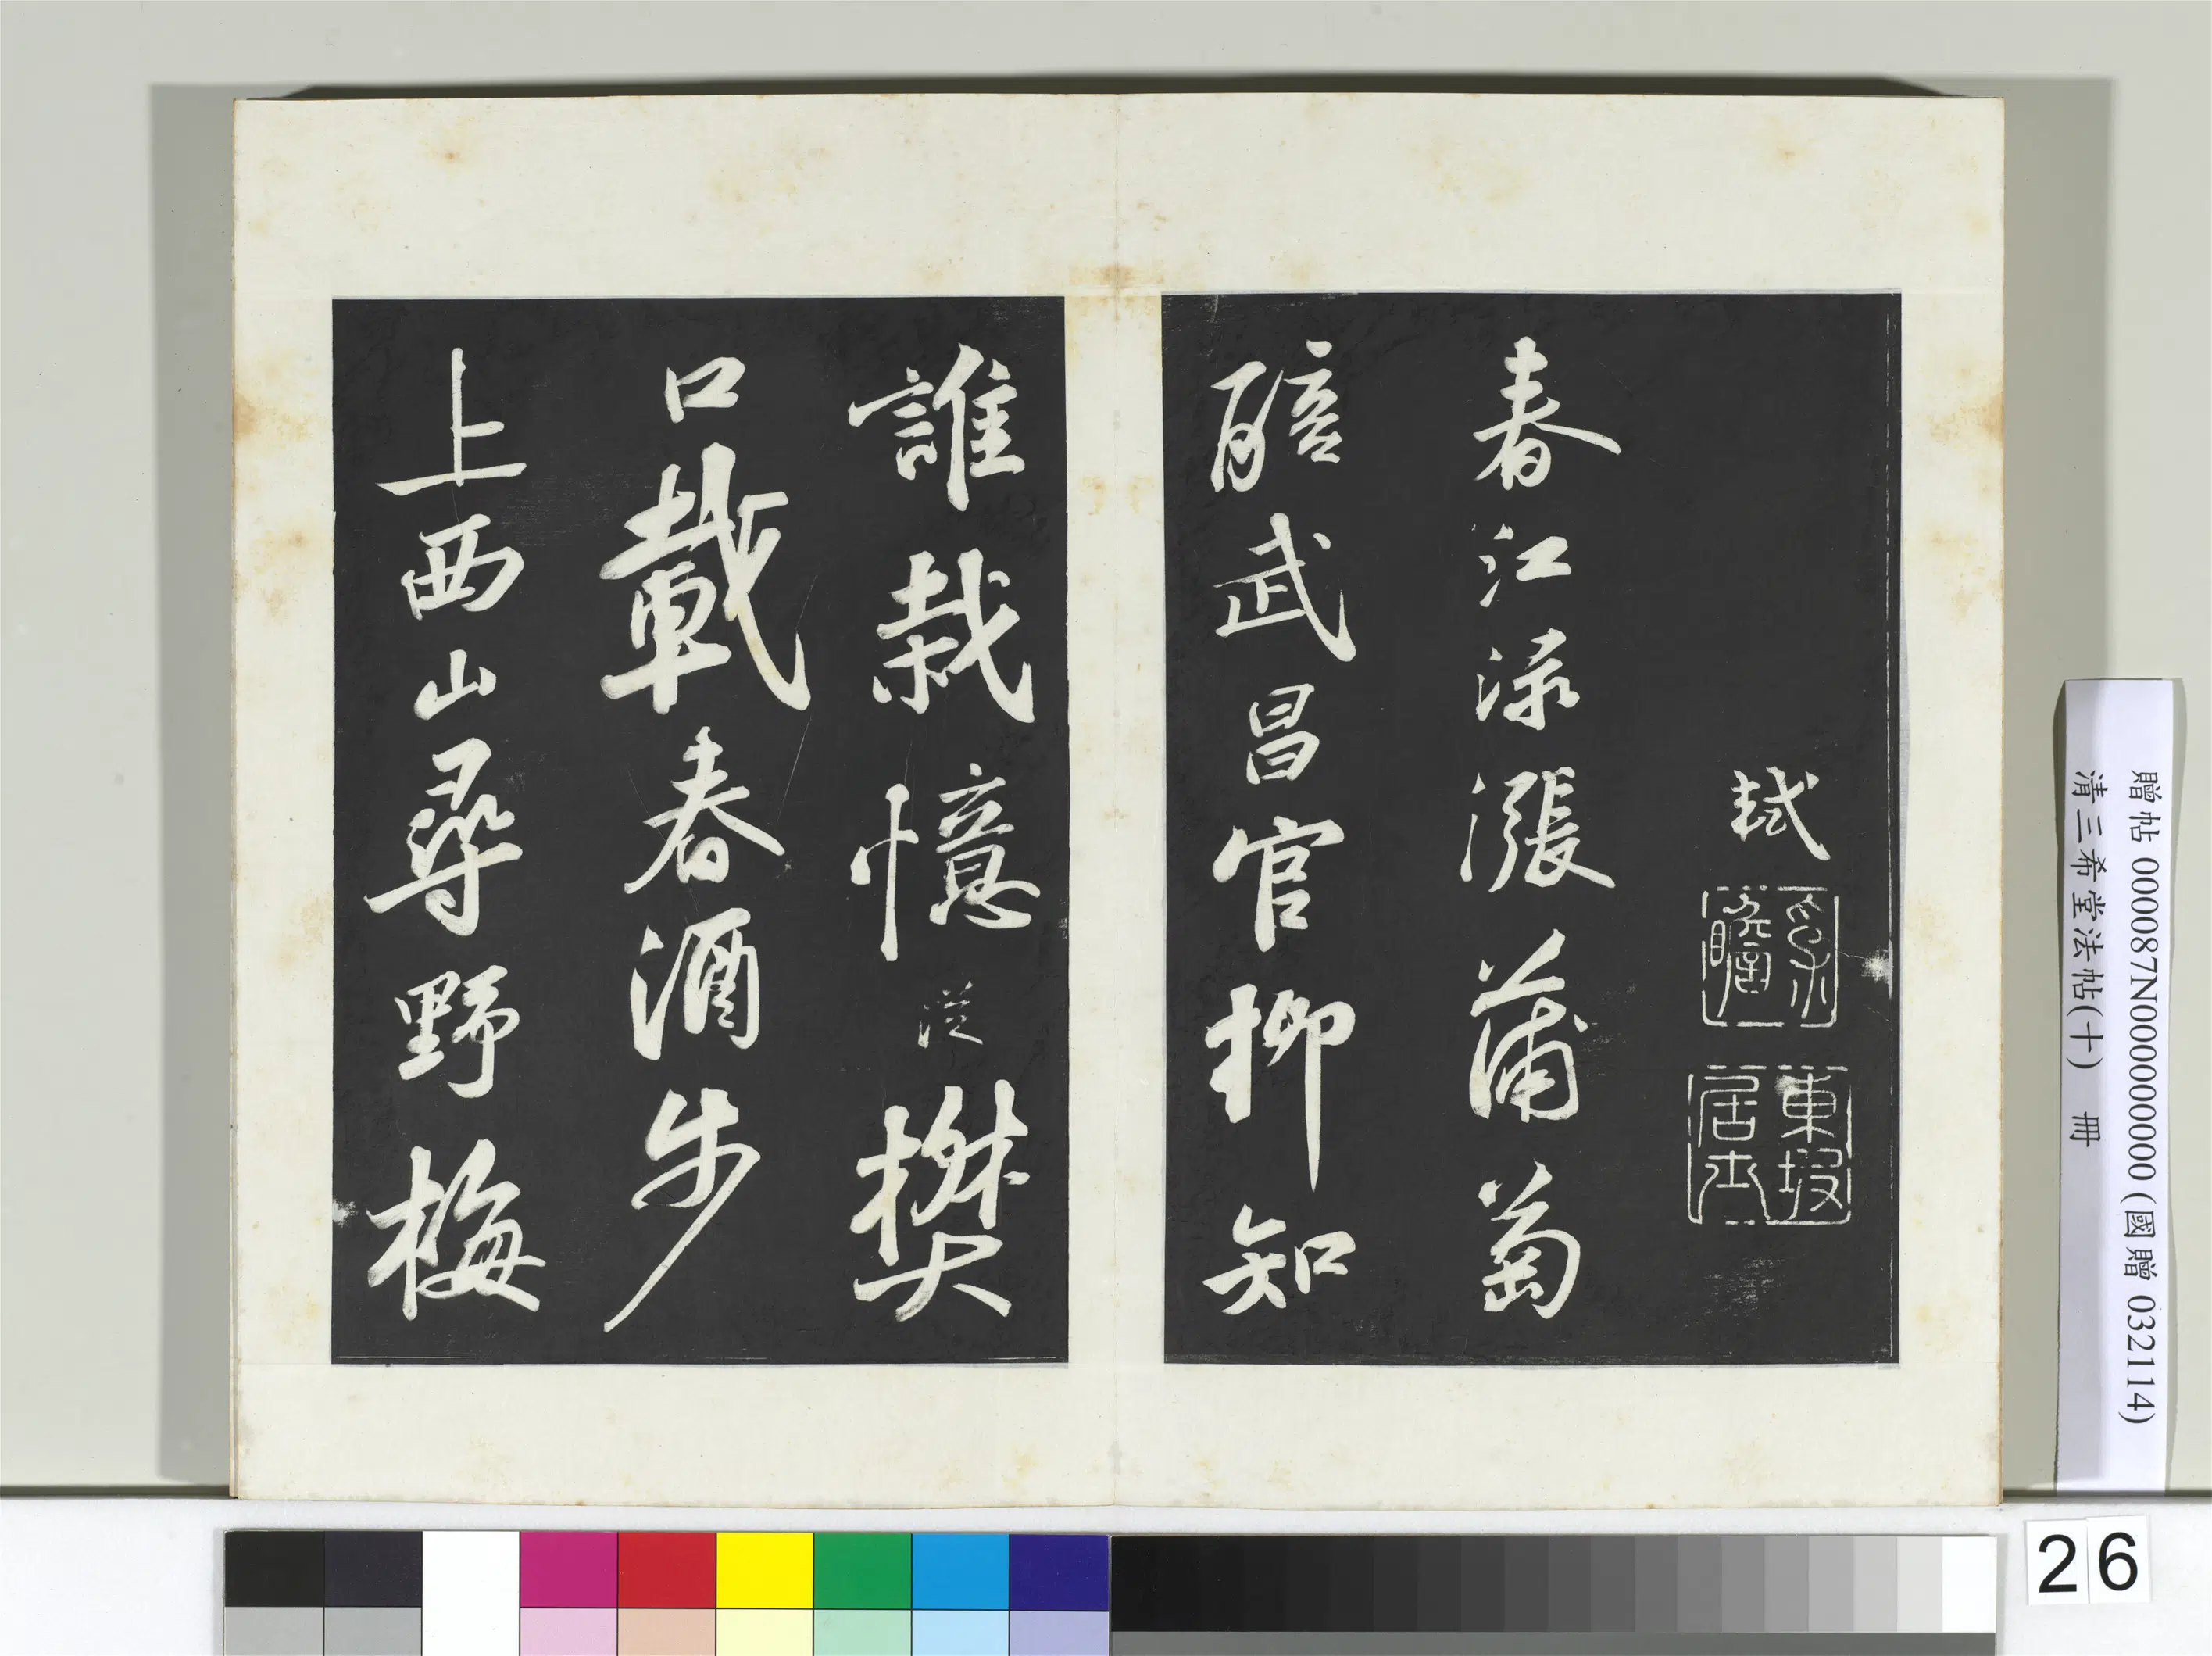 軾
子瞻
東坡居士
春江淥漲蒲萄
醅武昌官柳知
誰栽憶從樊
口載春酒步
上西山尋野梅
贈帖 000087N000000000 (國贈 032114)
清三希堂法帖(十) 冊
26